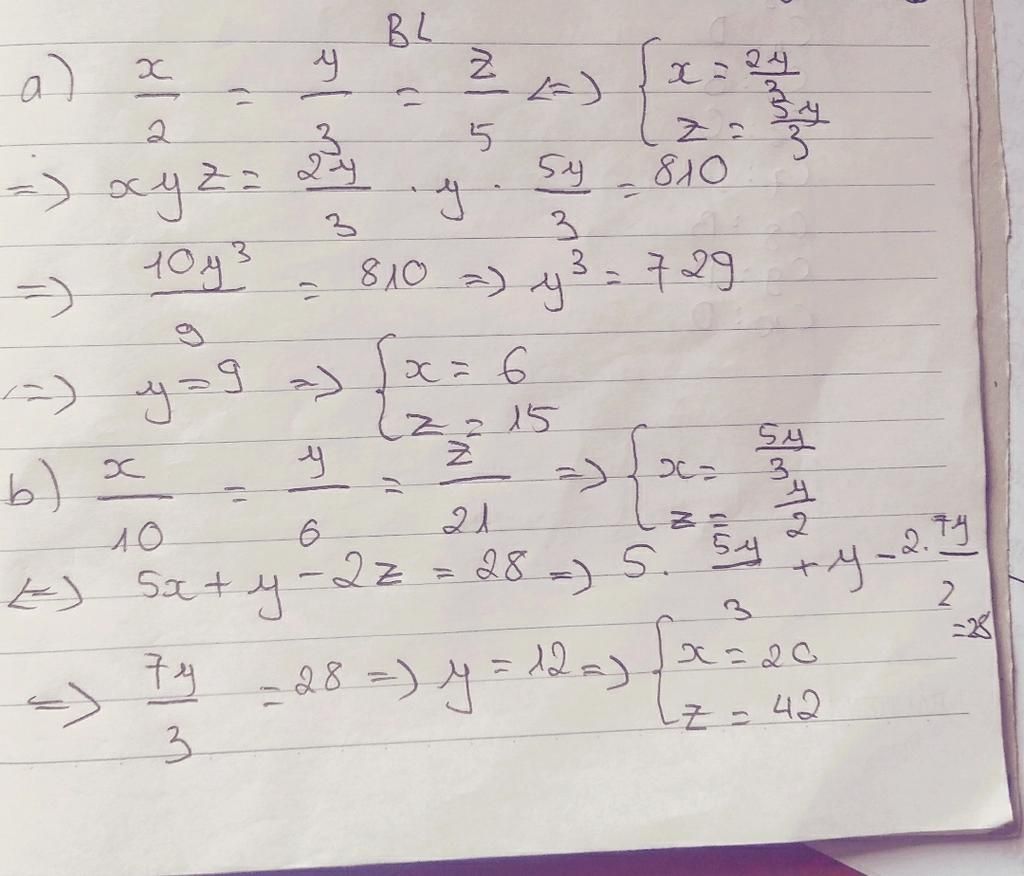 BL
a) x/2 = y/3 = z/5 <=> { x = 2y/3
z = 5y/3
=> xyz = 2y/3 . y . 5y/3 = 810
=> 10y³/9 = 810 => y³ = 729
=> y = 9 => { x = 6
z = 15
b) x/10 = y/6 = z/21 => { x = 5y/3
z = y/2
<=> 5x + y - 2z = 28 => 5. 5y/3 + y - 2. 7y/2
= 28
=> 7y/3 = 28 => y = 12 => { x = 20
z = 42